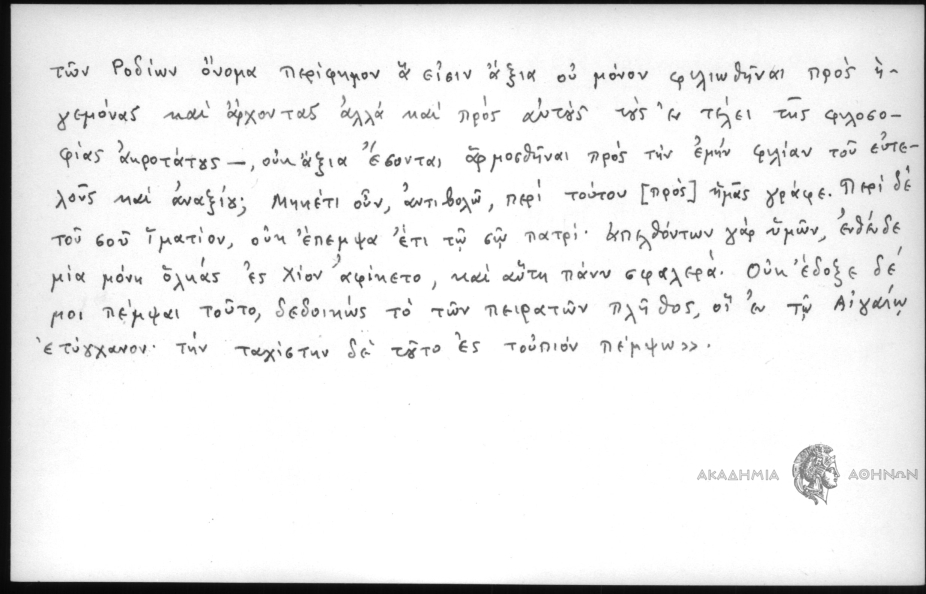 τῶν Ροδίων ὄνομα περίφημον ἅ εἰσιν ἄξια οὐ μόνον φιλιωθῆναι πρὸς ἡ-
γεμόνας καὶ ἄρχοντας ἀλλά καὶ πρὸς αὐτοὺς τοὺς ἐν τέλει τῆς φιλοσο-
φίας ἀκροτάτους —, οὐκ ἄξια ἔσονται ἁρμοσθῆναι πρὸς τὴν ἐμήν φιλίαν τοῦ εὐτε-
λοῦς καὶ ἀναξίου; Μηκέτι οὖν, ἀντιβολῶ, περί τούτου [πρὸς] ἡμᾶς γράφε. Περὶ δέ
τοῦ σοῦ ἱματίον, οὐκ ἔπεμψα ἔτι τῷ σῷ πατρί· ἀπελθόντων γάρ ὑμῶν, ἐνθένδε
μία μόνη ὁλκάς ἐς Χίον ἀφίκετο, καὶ αὕτη πάνυ σφαλερά. Οὐκ ἔδοξε δέ
μοι πέμψαι τοῦτο, δεδοικώς τὸ τῶν πειρατῶν πλῆθος, οἵ ἐν τῷ Αἰγαίῳ
ἐτύγχανον· τήν ταχίστην δὲ τοῦτο ἐς τοὐπιόν πέμψω».
ΑΚΑΔΗΜΙΑ ΑΘΗΝΩΝ